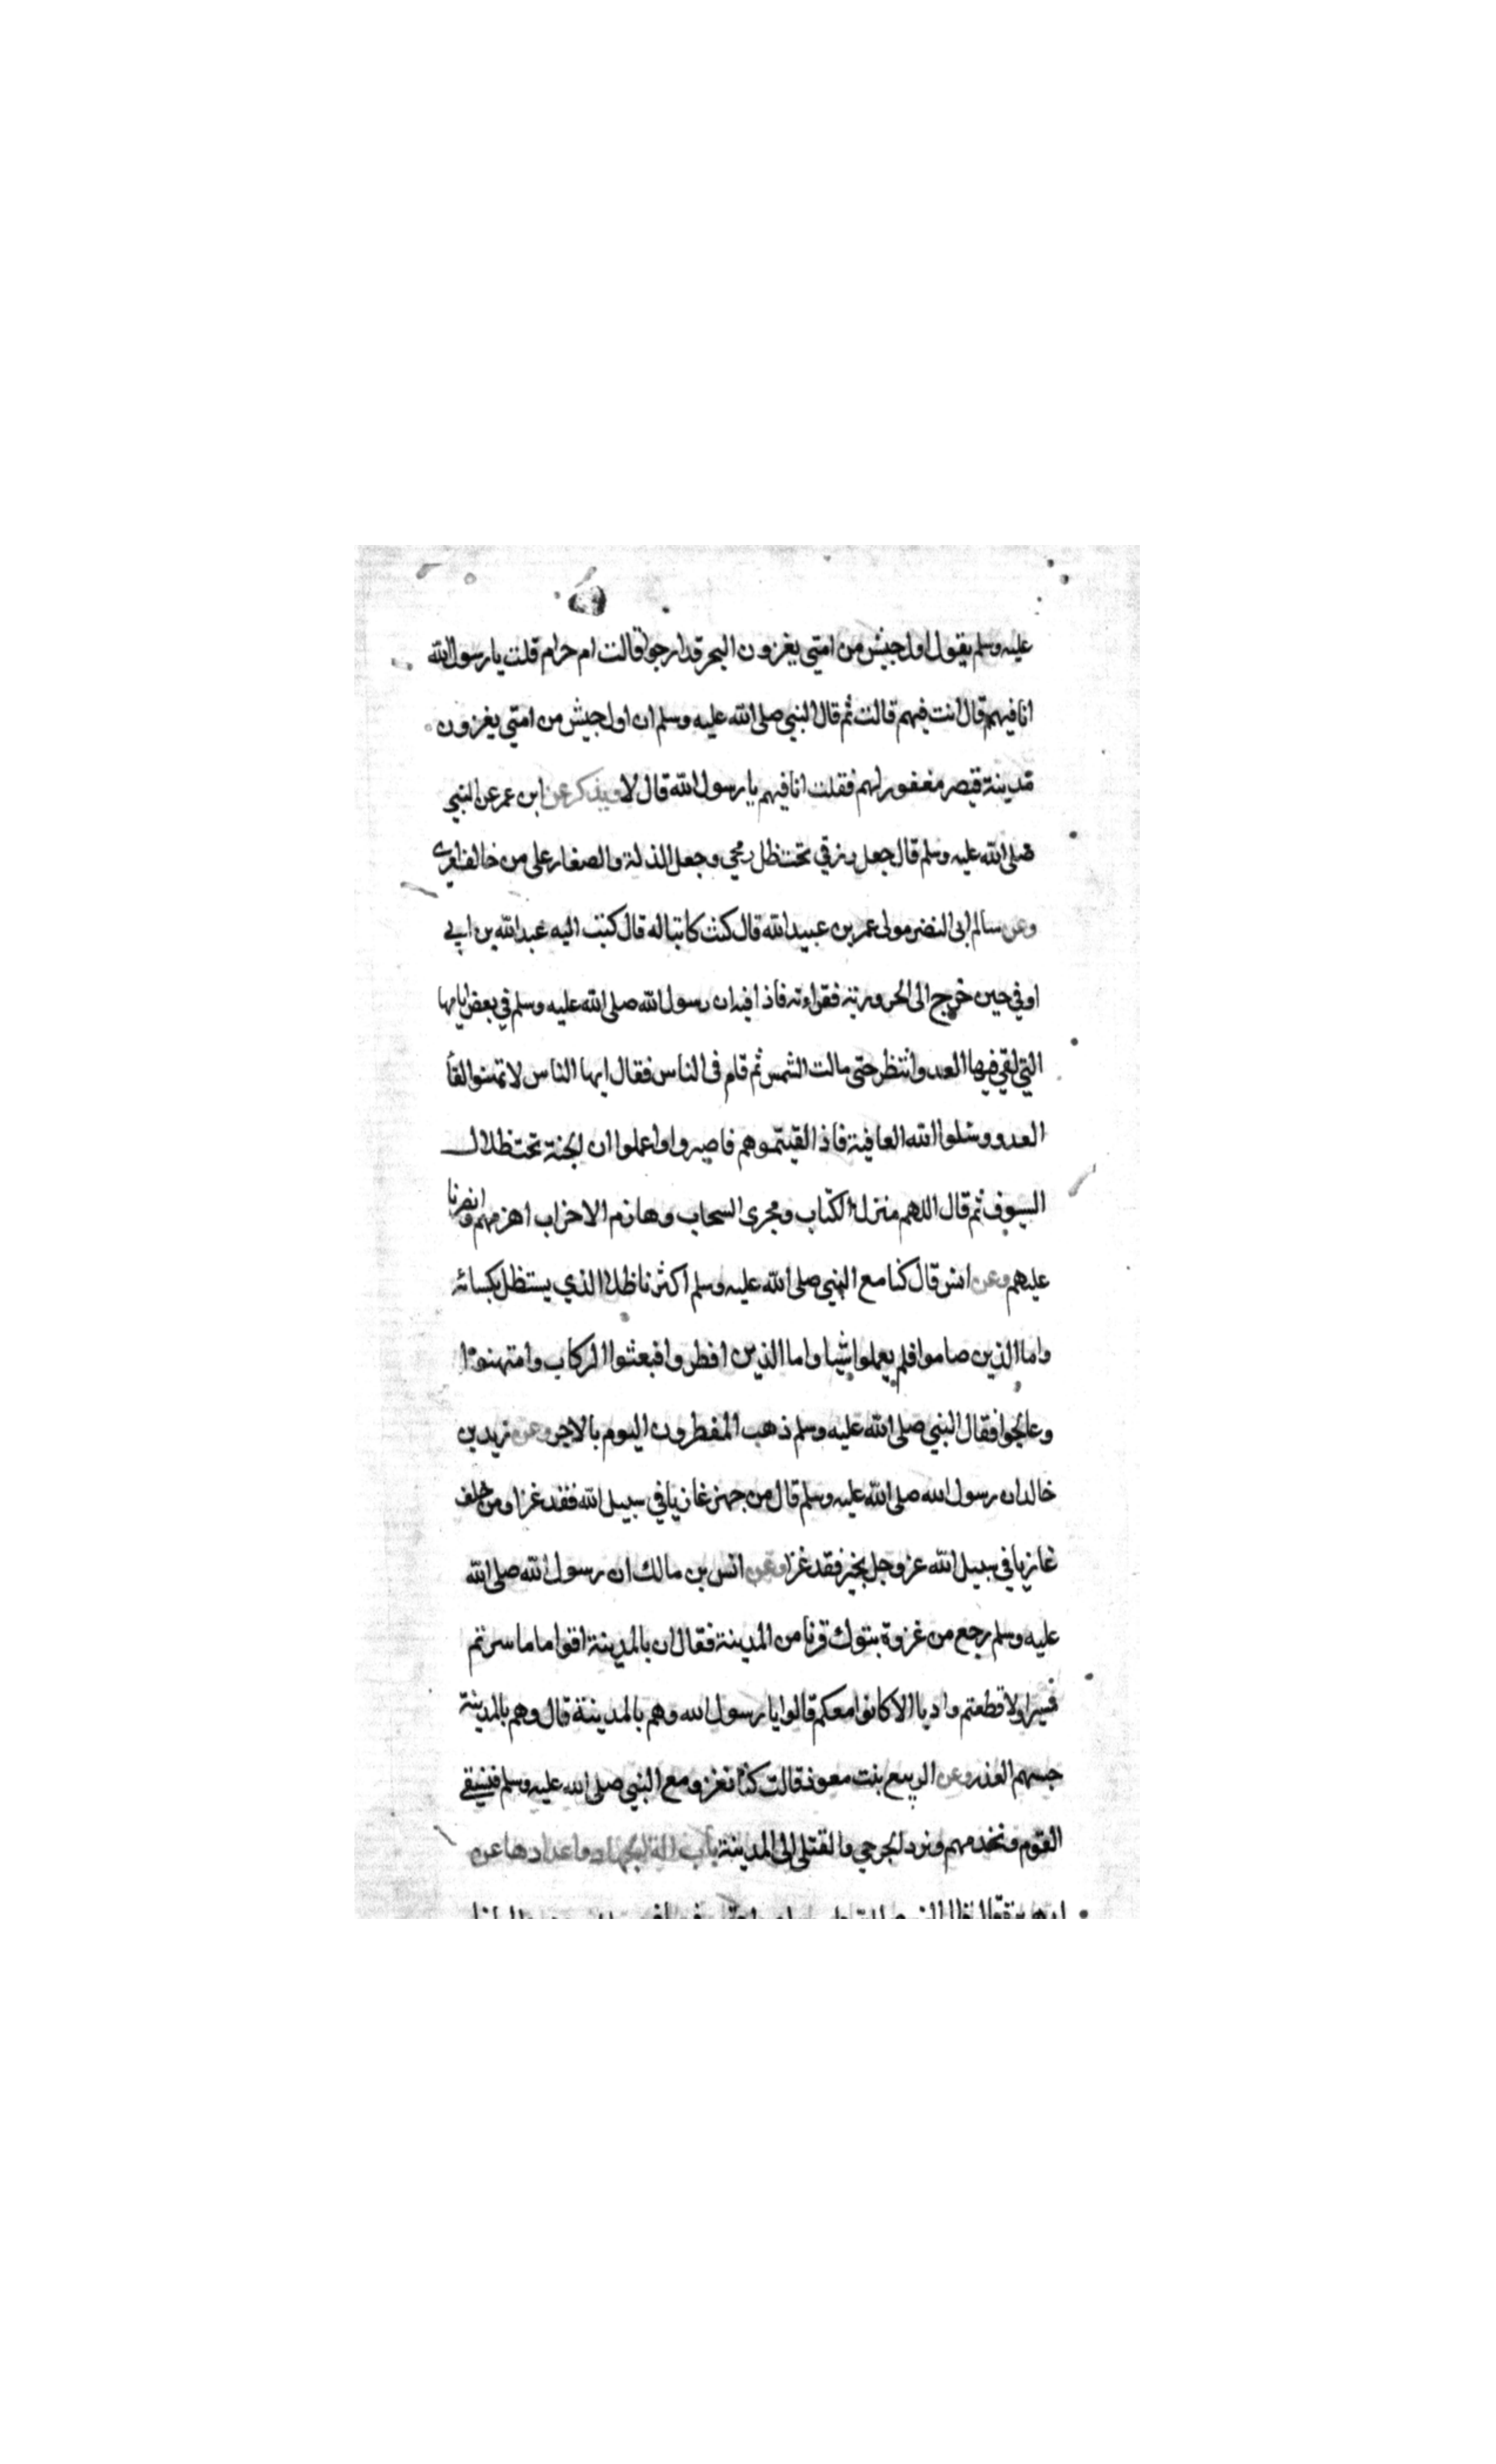 عليه وسلم يقول اول جيش من امتي يغزون البحر قد ارجبوا قالت ام حرام قلت يا رسول الله
انا فيهم قال انت فيهم قالت ثم قال النبي صلى الله عليه وسلم ان اول جيش من امتي يغزون
مدينة قيصر مغفور لهم فقلت انا فيهم يا رسول الله قال لا ويذكر عن ابن عمر عن النبي
صلى الله عليه وسلم قال جعل رزقي تحت ظل رمحي وجعل الذلة والصغار على من خالف امري
وعن سالم ابى النضر مولى عمر بن عبيد الله قال كنت كاتبا له قال كتب اليه عبد الله بن ابي
اوفي حين خرج الى الحرورية فقراءته فاذا فيه ان رسول الله صلى الله عليه وسلم في بعض ايامها
التي لقي فيها العدو انتظر حتى مالت الشمس ثم قام فى الناس فقال ايها الناس لا تمنوا لقأ
العدو وسلوا الله العافية فاذا لقيتموهم فاصبروا واعلموا ان الجنة تحت ظلال
السيوف ثم قال اللهم منزل الكتاب ومجرى السحاب وهازم الاحزاب اهزمهم وانصرنا
عليهم وعن انس قال كنا مع النبي صلى الله عليه وسلم اكثرنا ظلا الذي يستظل بكسائه
واما الذين صاموا فلم يعملوا شيا واما الذين افطروا فبعثوا الركاب وامتهنوا
وعالجوا فقال النبي صلى الله عليه وسلم ذهب المفطرون اليوم بالاجر وعن زيد بن
خالد ان رسول الله صلى الله عليه وسلم قال من جهز غازيا في سبيل الله فقد غزا ومن خلف
غازيا في سبيل الله عز وجل بخير فقد غزا وعن انس بن مالك ان رسول الله صلى الله
عليه وسلم رجع من غزوة بتوك فدنا من المدينة فقال ان بالمدينة اقواما ما سرتم
مسيرا ولا قطعتم واديا الا كانوا معكم قالوا يا رسول الله وهم بالمدينة قال وهم بالمدينة
حبسهم العذر وعن الربيع بنت معوذ قالت كنا نغزو مع النبي صلى الله عليه وسلم فنسقي
القوم ونخدمهم ونرد الجرحي والقتلى الى المدينة باب الة الجهاد واعدادها عن